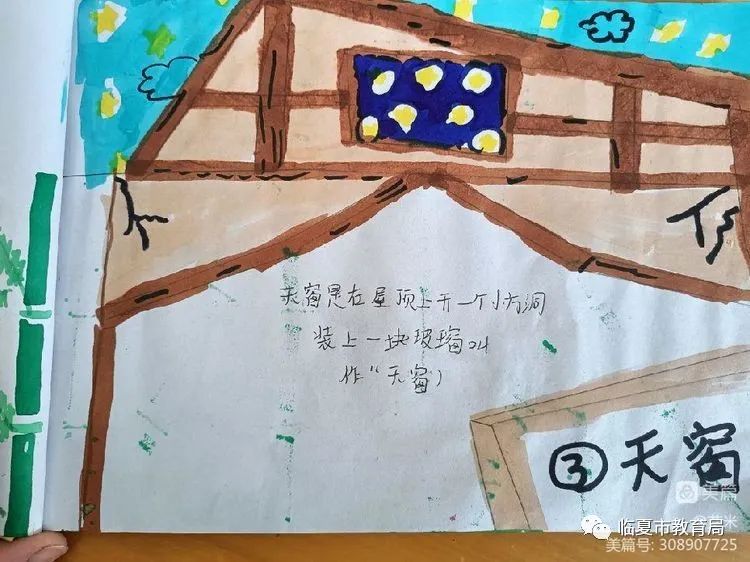 天窗是在屋顶上开一个小方洞
装上一块玻璃叫
作“天窗）
③天窗
美篇
临夏市教育局
美篇号: 308907725